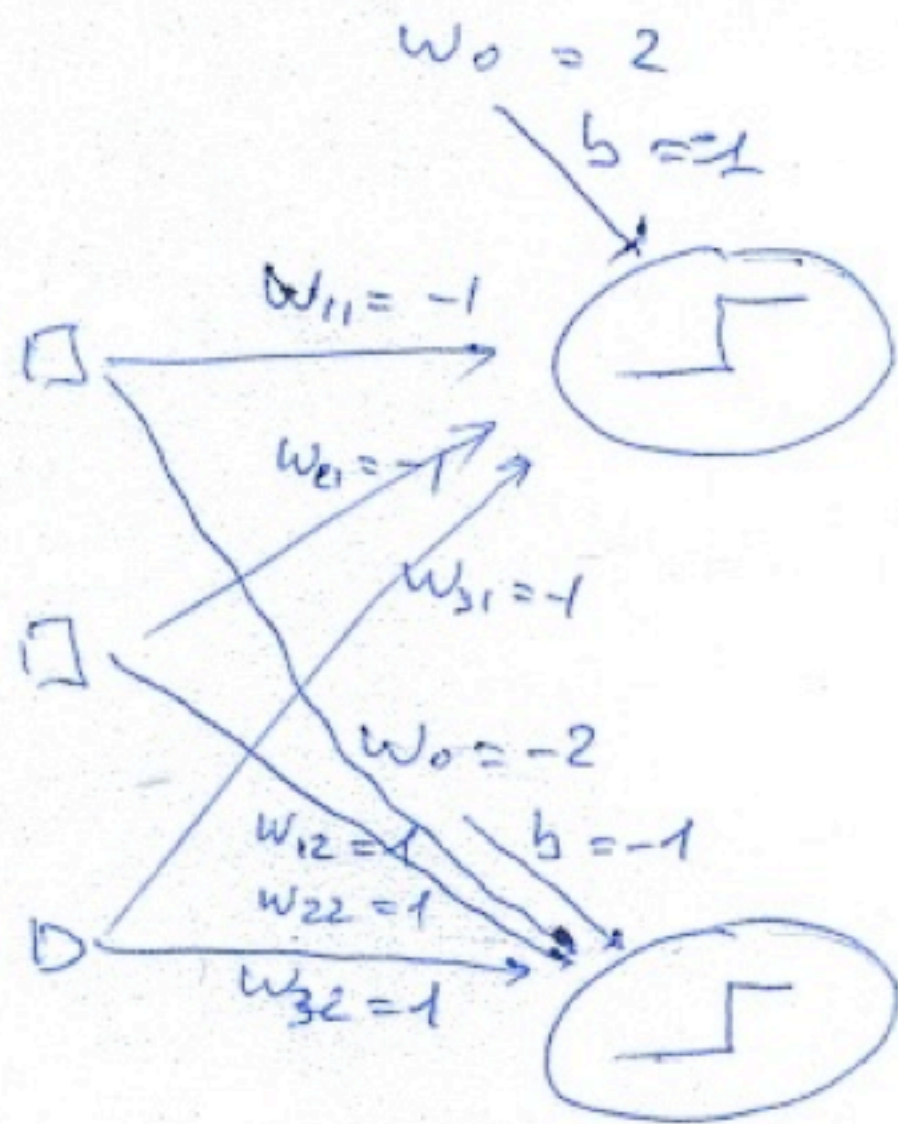 w0 = 2
b = -1
w11 = -1
w21 = -1
w31 = -1
w0 = -2
w12 = 1
b = -1
w22 = 1
w32 = 1